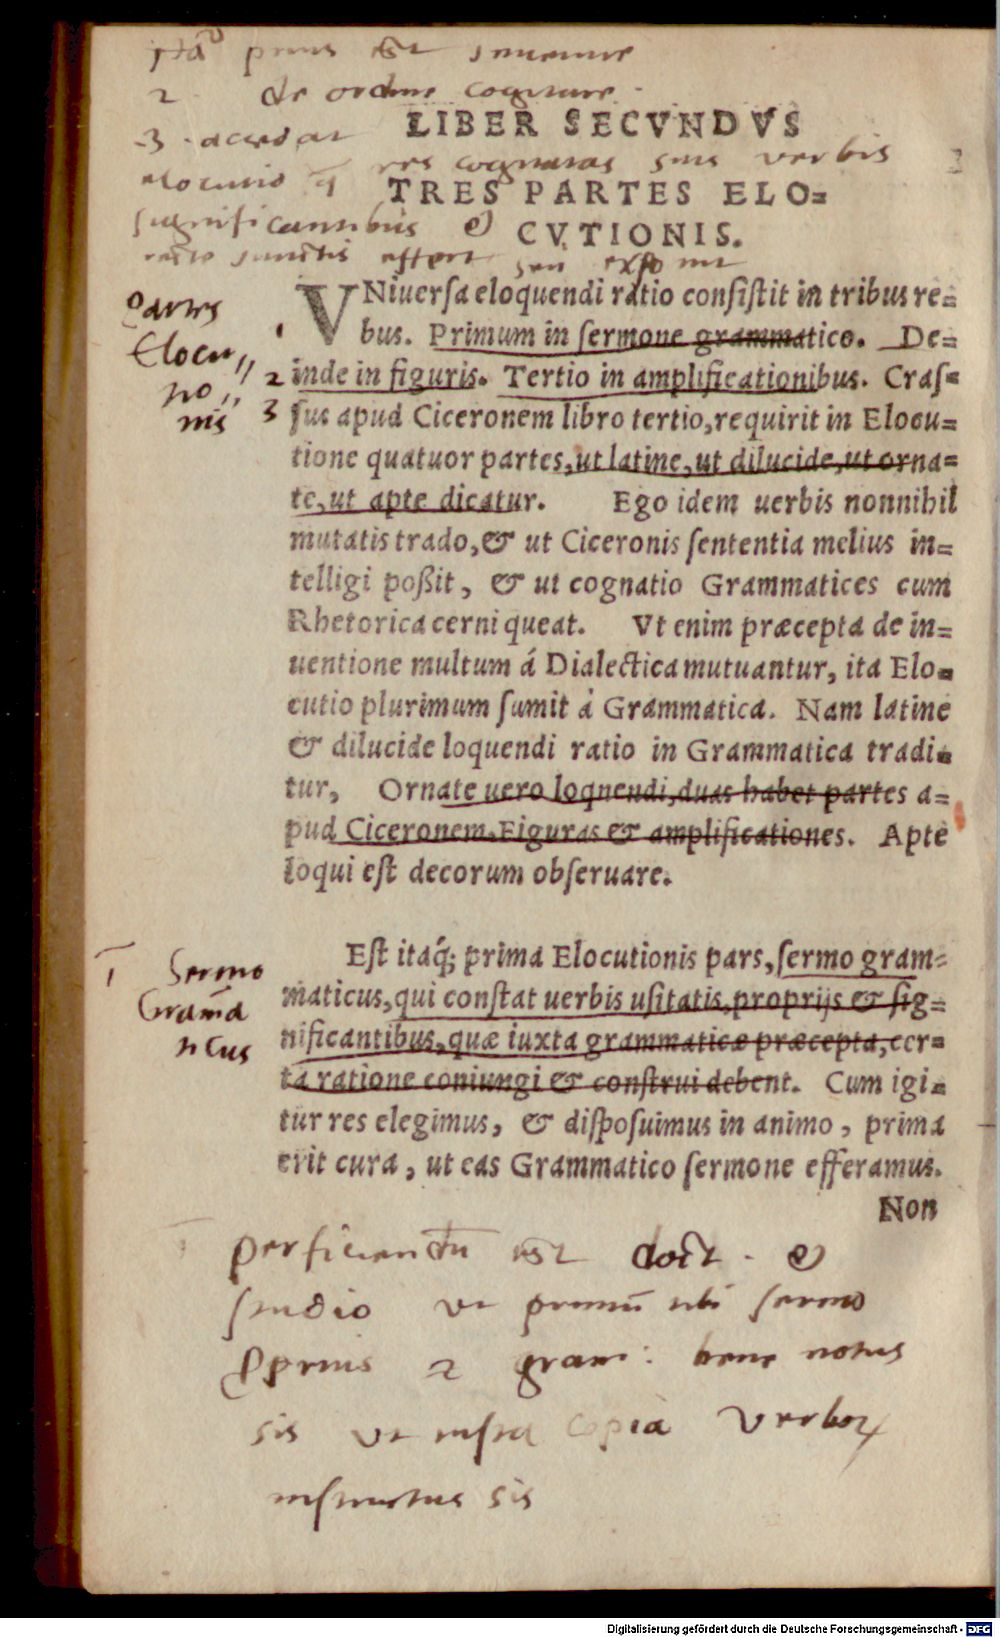 prius est inuenire
2. de ordine cogitare.
LIBER SECVNDVS
3. accedat
res cognitas suis verbis
elocutio q̄
TRES PARTES ELO=
significantibus &
CVTIONIS.
recte iunctis effert seu exponit
Partes
Elocu,,
tio,,
nis
1
2
3
VNiuerſa eloquendi ratio conſiſtit in tribus re=
bus. Primum in ſermone grammatico. De=
inde in figuris. Tertio in amplificationibus. Craſ=
ſus apud Ciceronem libro tertio, requirit in Elocu=
tione quatuor partes, ut latine, ut dilucide, ut orna=
te, ut apte dicatur. Ego idem uerbis nonnihil
mutatis trado, & ut Ciceronis ſententia melius in=
telligi poßit, & ut cognatio Grammatices cum
Rhetorica cerni queat. Vt enim præcepta de in=
uentione multum á Dialectica mutuantur, ita Elo=
cutio plurimum ſumit á Grammatica. Nam latine
& dilucide loquendi ratio in Grammatica tradi=
tur, Ornate uero loquendi, duas habet partes a=
pud Ciceronem, Figuras & amplificationes. Apte
loqui eſt decorum obſeruare.
1
Sermo
Gram̄a
ticus
Eſt itaq́; prima Elocutionis pars, ſermo gram=
maticus, qui conſtat uerbis uſitatis, proprijs & ſig=
nificantibus, quæ iuxta grammaticæ præcepta, cer=
ta ratione coniungi & conſtrui debent. Cum igi=
tur res elegimus, & diſpoſuimus in animo, prima
erit cura, ut eas Grammatico ſermone efferamus.
Non
perficiendū est &
studio vt primū tibi sermo
proprius 2 gram: bene notus
sis vt iusta copia verboꝝ
instructus sis
Digitalisierung gefördert durch die Deutsche Forschungsgemeinschaft - DFG